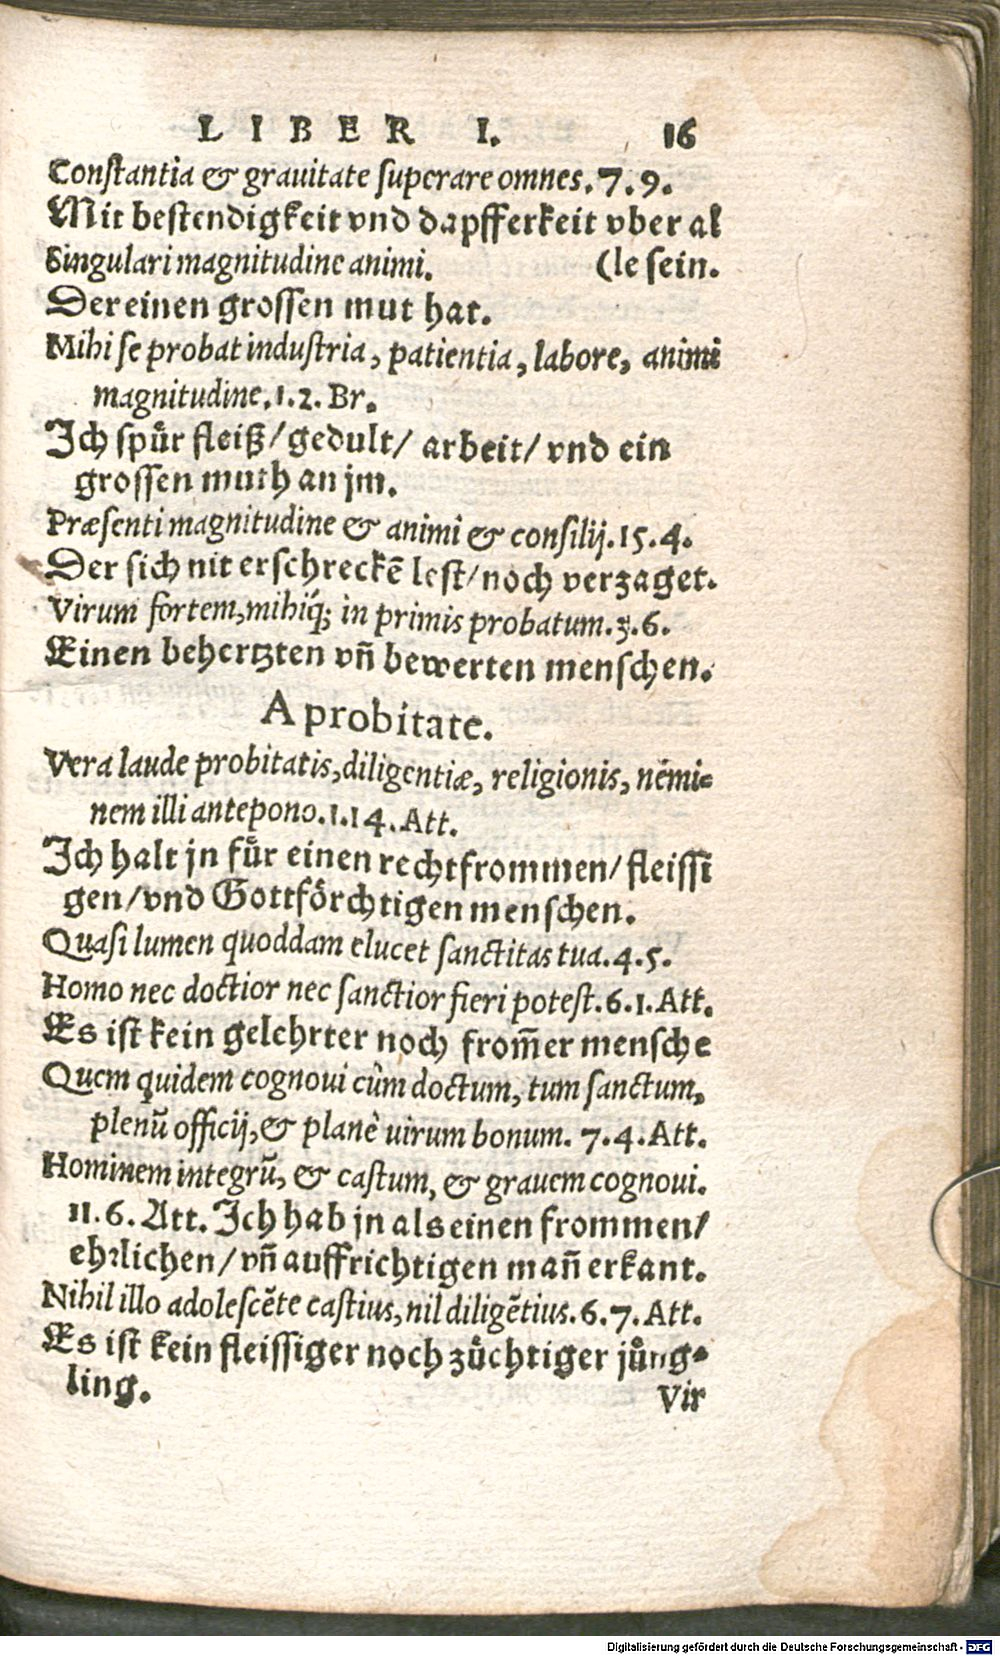 LIBER I. 16
Constantia & grauitate superare omnes. 7. 9.
Mit bestendigkeit vnd dapfferkeit vber al
Singulari magnitudine animi. (le sein.
Der einen grossen mut hat.
Mihi se probat industria, patientia, labore, animi
magnitudine. 1. 2. Br.
Ich spůr fleiß/ gedult/ arbeit/ vnd ein
grossen muth an jm.
Præsenti magnitudine & animi & consilij. 15. 4.
Der sich nit erschreckẽ lest/ noch verzaget.
Virum fortem, mihiq́; in primis probatum. 3. 6.
Einen behertzten vñ bewerten menschen.
A probitate.
Vera laude probitatis, diligentiæ, religionis, némi-
nem illi antepono. 1. 14. Att.
Ich halt jn fůr einen rechtfrommen/ fleissi
gen/ vnd Gottförchtigen menschen.
Quasi lumen quoddam elucet sanctitas tua. 4. 5.
Homo nec doctior nec sanctior fieri potest. 6. 1. Att.
Es ist kein gelehrter noch from̃er mensche
Quem quidem cognoui cùm doctum, tum sanctum,
plenũ officij, & planè uirum bonum. 7. 4. Att.
Hominem integrũ, & castum, & grauem cognoui.
11. 6. Att. Ich hab jn als einen frommen/
ehrlichen/ vñ auffrichtigen mañ erkant.
Nihil illo adolescẽte castius, nil diligẽtius. 6. 7. Att.
Es ist kein fleissiger noch zůchtiger jůng-
ling. Vir
Digitalisierung gefördert durch die Deutsche Forschungsgemeinschaft - DFG